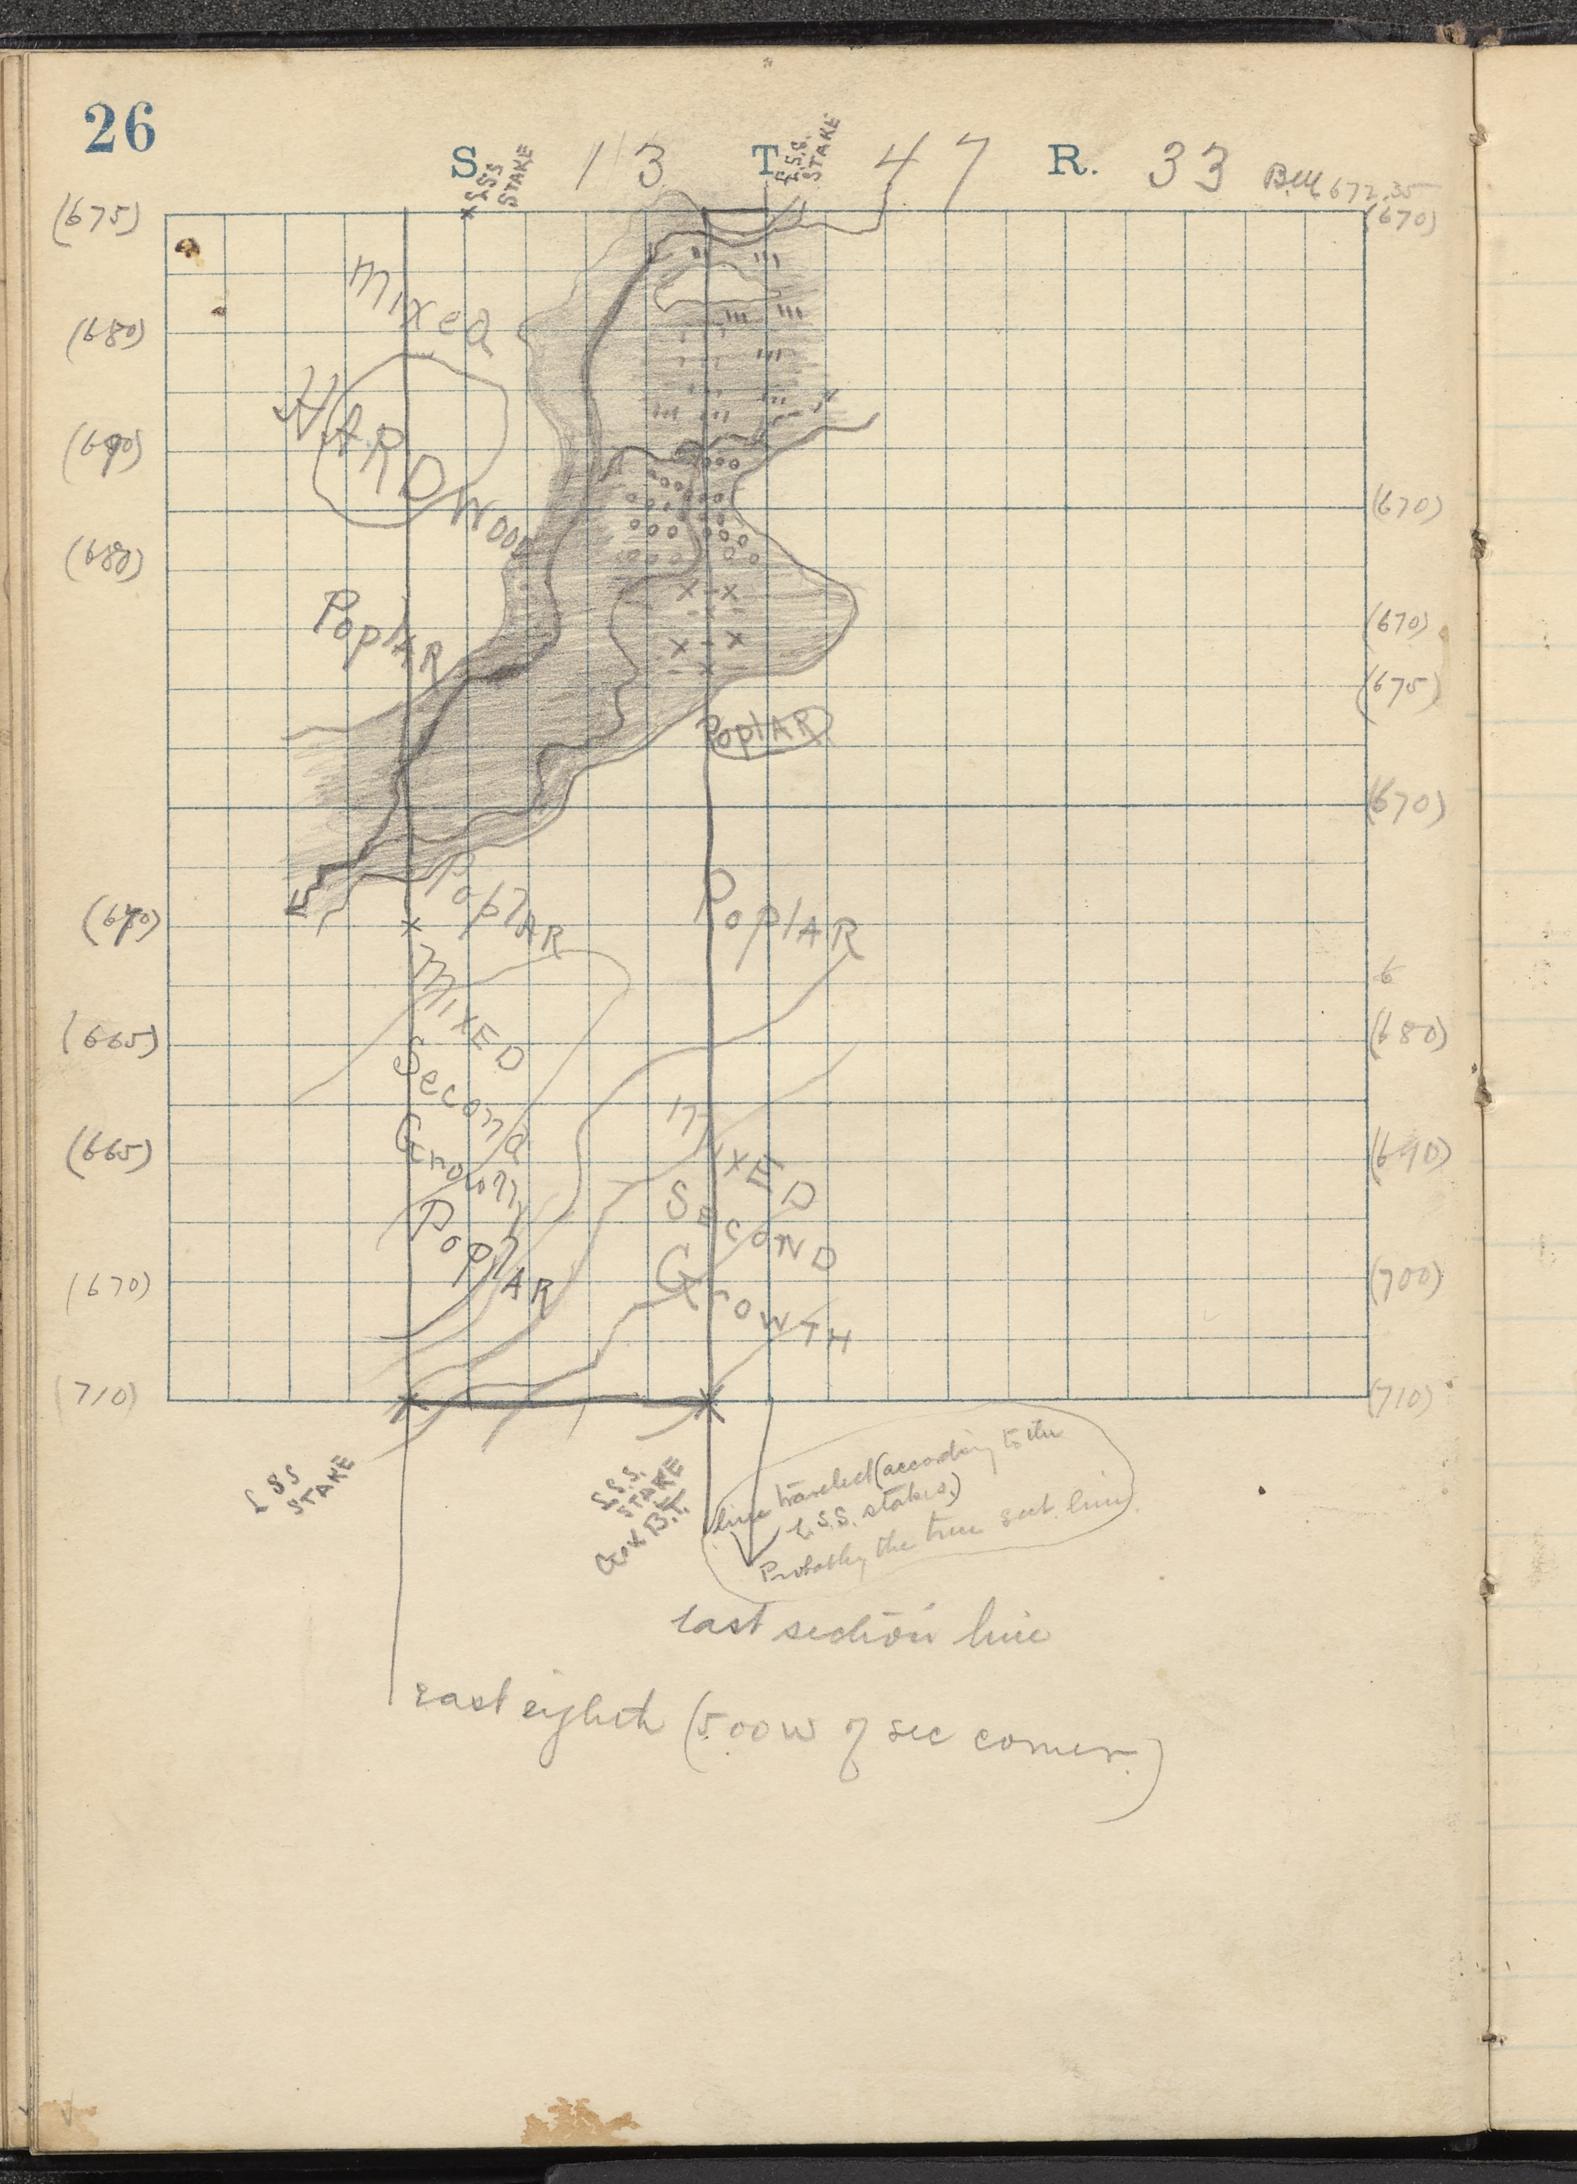 26
S. 13 T. 47 R. 33
L.S.S. STAKE
L.S.S. STAKE
BM 672.35
(675)
(670)
mixed
(680)
HARDWOOD
(690)
(670)
(680)
PoplAR
(670)
(675)
PoplAR
(670)
PoplAR
PoplAR
(670)
MIXED
6
(665)
Second
(680)
Growth
MIXED
(665)
(690)
PoplAR
SECOND
(670)
GrowTH
(700)
(710)
(710)
L SS
STAKE
L.S.S.
STAKE
B.T.
line traveled (according to the
L.S.S. stakes.)
Probably the true sect. line
East section line
East eighth (500 W of sec corner.)